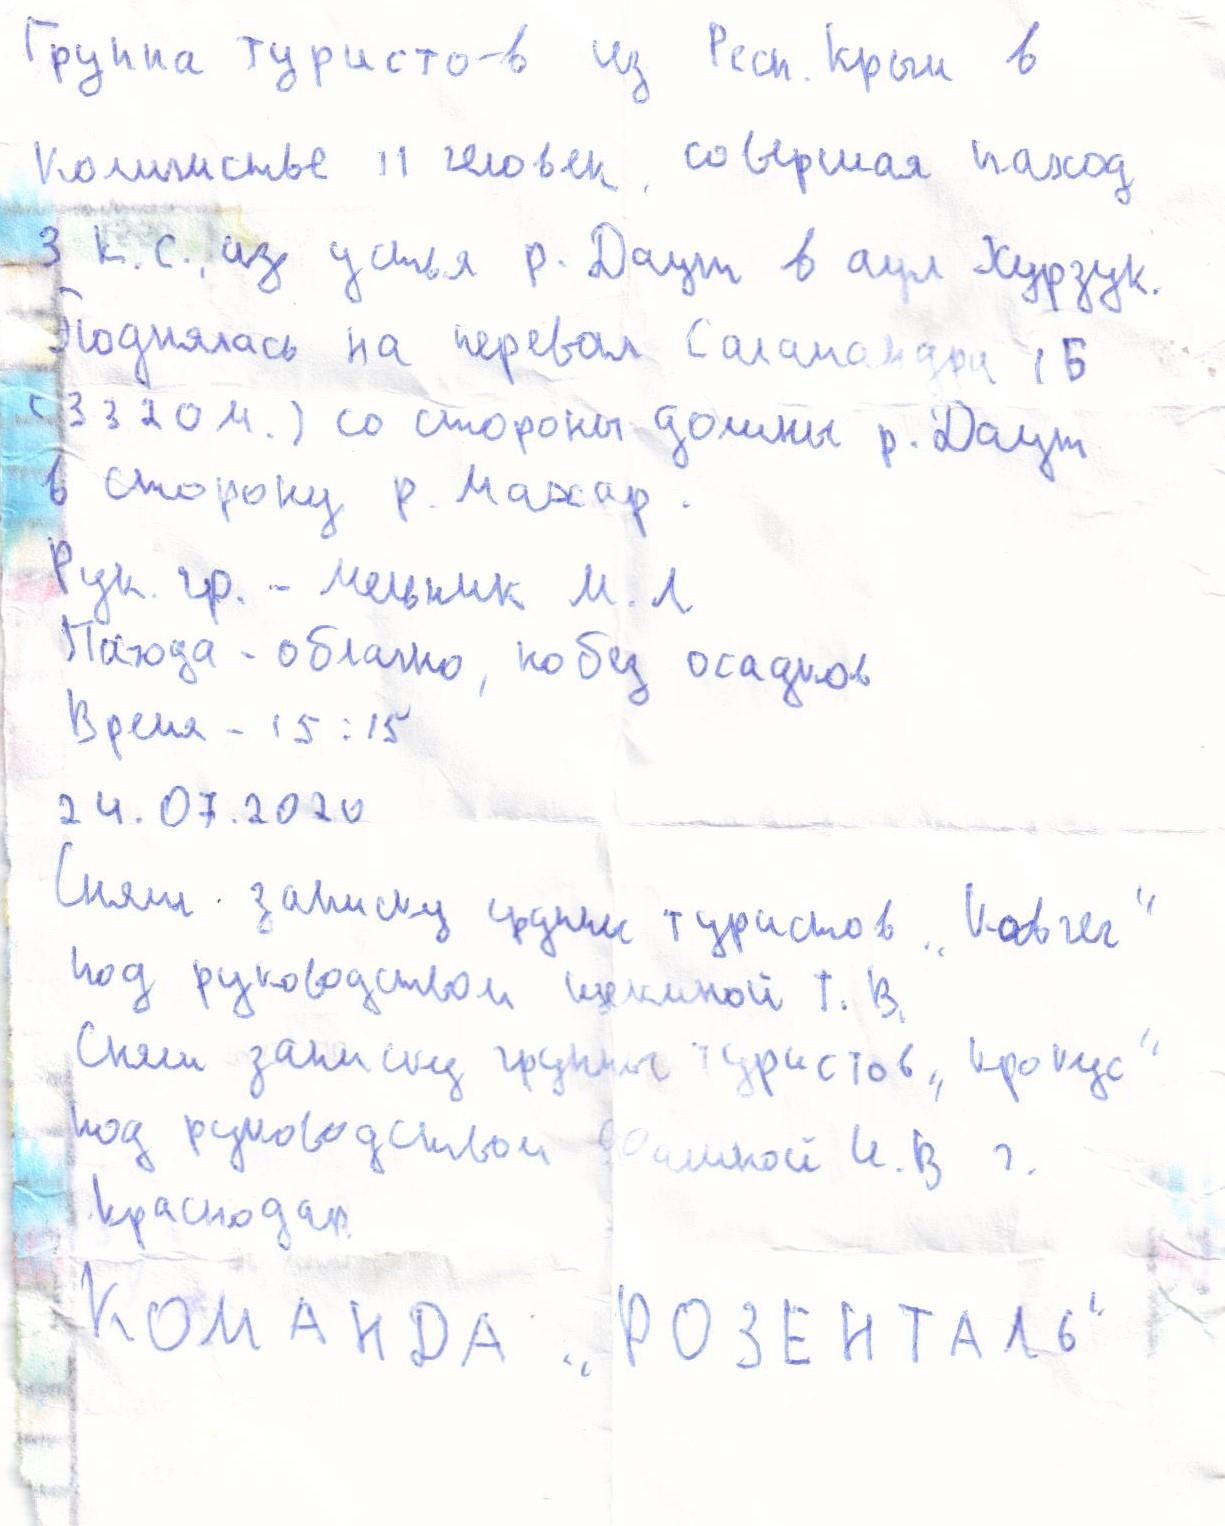 Группа туристов из Респ. Крым в
количистве 11 человек, совершая паход
3 к.с., из устья р. Даут в аул Хурзук.
Поднялась на перевал Саламандра 1Б
(3320 м.) со стороны долины р. Даут
в сторону р. Махар.
Рук. гр. - Мельник М. Л
Пагода - облачно, но без осадков
Время - 15:15
24.07.2020
Сняли записку группы туристов „Ковчег"
под руководством Щекиной Т. В.
Сняли записку группы туристов „Крокус"
под руководством И.В г.
Краснодар.
КОМАНДА „РОЗЕНТАЛЬ"